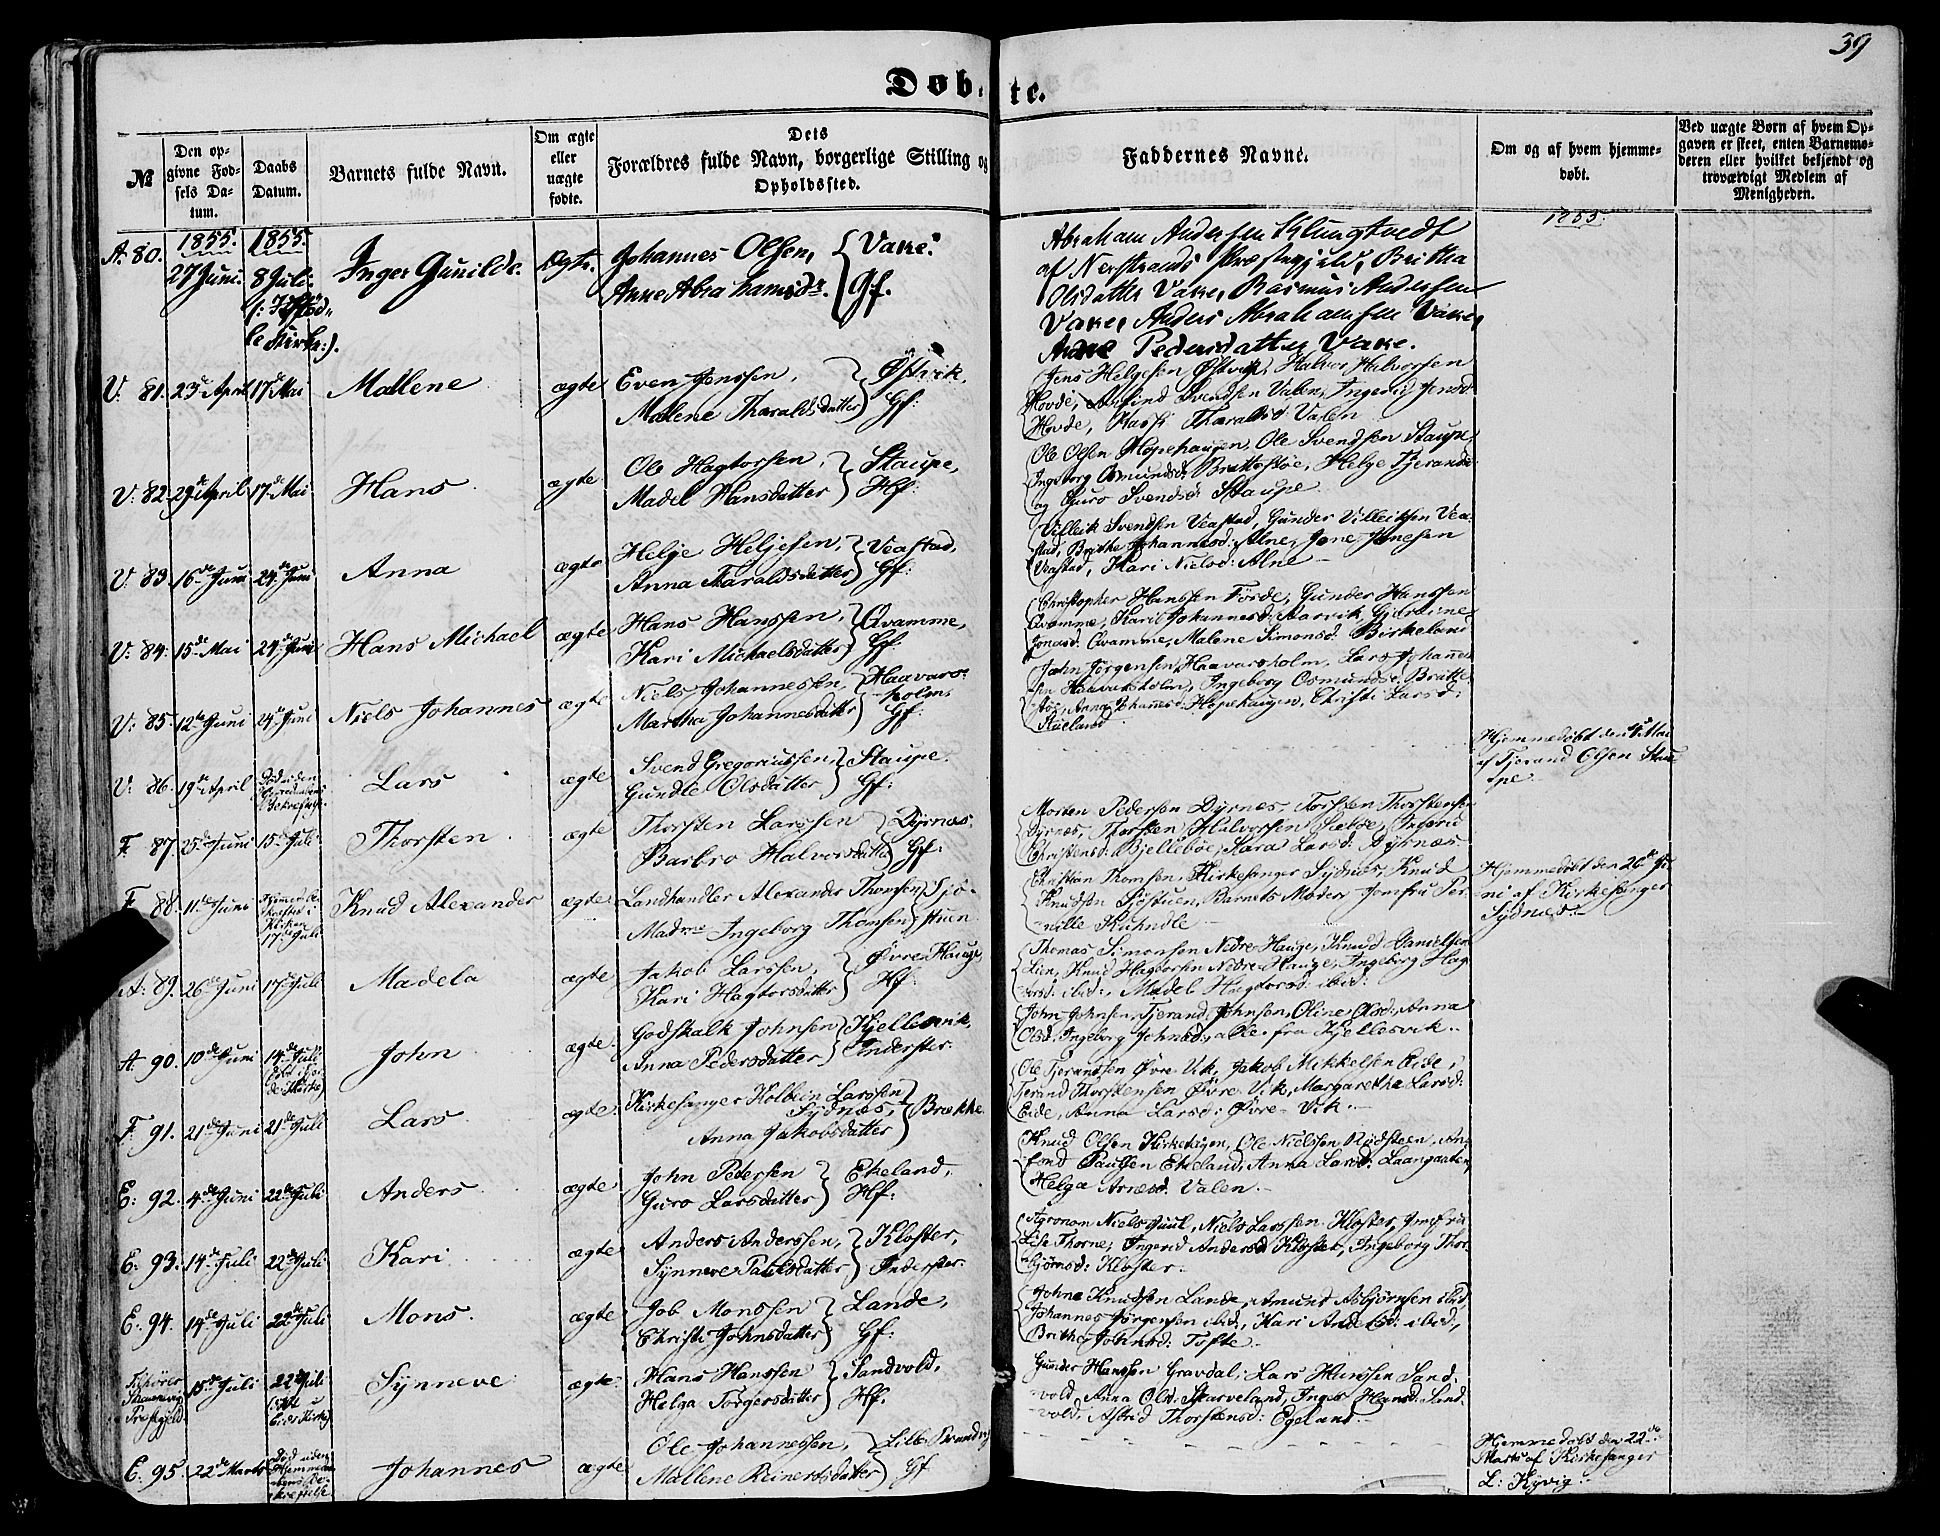 39
Døbte.
№
Den opgivne Fødsels Datum.
Daabs Datum.
Barnets fulde Navn.
Om ægte eller uægte fødte.
Dets Forældres fulde Navn, borgerlige Stilling og Opholdssted.
Faddernes Navne.
Om og af hvem hjemmedøbt.
Ved uægte Børn af hvem Opgaven er skeet, enten Barnemoderen eller hvilket bekjendt og troværdigt Medlem af Menigheden.
1855. 1855. 1855.
A. 80. 27 Juni. 8 Juli. Inger Gunilde. Ægte. Johannes Olsen, Anne Abrahamsdr. Vake. Gf.
Abraham Andersen Klungtvedt
af Nerstrands Præstegjeld, Brittha
Olsdatter Vake, Rasmus Andersen
Vake, Anders Abrahamsen Vake,
Anne Pedersdatter Vake.
V. 81. 23de April 17de Mai Mallene ægte Even Jenssen, Malene Tharaldsdatter Østvik, Gf:
Jens Helgesen Østvik, Halvor Halvorssen
Hovde, Svendsen Valen, Ingerid Jensd:
Hovde, Tharaldsd: Valen
V: 82. 29de April 17de Mai Hans ægte Ole Hagtorssen, Madel Hansdatter Staupe, Hf:
Ole Olsen Hopehaugen, Ole Svendsen Staupe,
Ingeborg Osmundsd: Brattestøe, Helge Tjerands:
og Guro Svendsd: Staupe
V: 83. 16de Juni 24de Juni Anna ægte Helge Helgesen, Anna Tharaldsdatter Veastad, Gf:
Villeik Svendsen Veastad, Gunder Villeiksen Vea-
stad, Brithe Johannesd: Alne, Jone Jonesen
Veastad, Kari Nielsd: Alne
V: 84. 15de Mai 24de Juni Hans Michael ægte Hans Hanssen, Kari Michaelsdatter Qvamme, Gf:
Christopher Hanssen Førde, Gunder Hanssen
Qvamme, Kari Johannesd:
Jonasd: Qvamme, Malene Simonsd: Birkeland
V: 85. 12de Juni 24de Juni Niels Johannes ægte Niels Johannessen, Martha Johannesdatter Haavars-holm, Gf:
John Jørgensen Haavarsholm, Lars Johannes-
sen Haavarsholm, Ingeborg Osmundsd: Bratte-
støe, Anna Johannesd: Hopehaugen, Christi Larsd:
V: 86. 19de April Lars ægte Svend Gregoriussen, Gundle Olsdatter Staupe. Gf:
Hjemmedøbt den 4de Mai
af Tjerand Olsen Stau-
pe
F. 87. 25de Juni 15de Juli Thorsten ægte Thorsten Larssen Barbro Halvorsdatter Dyrnæs, Gf:
Morten Pedersen Dyrnæs, Torsten Thorstens:
Dyrnæs, Thorsten Halvorssen Sætøe,
Christensd: Bjellebøe, Kara Larsd: Dyrnæs
F. 88. 11de Juni 17de Juli Knud Alexander ægte. Landhandler Alexander Thomsen Madme Ingeborg Thomsen Sjø-stuen
Christian Thomsen, Kirkesanger Sydnæs, Knud
Knudsen Sjøstuen, Barnets Moder, Jomfru Per-
nille Kuhndle
Hjemmedøbt den 26de Ju-
ni af Kirkesanger
Sydnæs.
A: 89. 26de Juni 17de Juli Madela ægte Jakob Larssen, Kari Hagtorsdatter Øvre Hauge, Hf:
Thomas Simonsen Nedre-Hauge, Knud Danielsen
Lien, Knud Hagtorsen Nedre-Hauge, Ingeborg Hag-
torsd: ibid:, Madel Hagtorsd: ibid:
A: 90. 10de Juni 14de Juli John ægte. Godskalk Johnsen Anna Pedersdatter Kjellesvik, Inderster.
John Johnsen, Tjerand Johnsen, Oline Olsd:, Anna
Olsd:, Ingeborg Johnsd:, alle fra Kjellesvik.
F. 91. 21de Juni 21de Juli Lars ægte. Kirkesanger Holbein Larssen Sydnæs, Anna Jakobsdatter Brekke
Ole Tjerandssen Øvre Vik, Jakob Mikkelsen Eide,
Tjerand Thorstensen Øvre Vik, Margaretha Larsd:
Eide, Anna Larsd: Øvre-Vik.
E: 92. 4de Juni 22de Juli Anders ægte John Pedersen Guro Larsdatter Ekeland, Hf:
Knud Olsen Kirketeigen, Ole Nielssen Rødsteen, An-
Paulsen Ekeland, Anna Larsd: Laangaaten,
Helga Arnesd: Valen.
E. 93. 14de Juli 22de Juli Kari ægte Anders Anderssen, Synneve Paulsdatter Kloster, Inderster.
Agronom Niels Juul, Niels Larssen Kloster, Jomfru
Lise Thorne, Ingerid Andersd Kloster, Ingeborg Thor-
bjørnsd: Kloster.
E. 94. 14de Juli 22de Juli Mons. ægte Job Monssen Christi Johnsdatter Lande, Gf:
Johne Knudsen Lande, Amund Asbjørnsen ibid,
Johannes Jørgensen ibid:, Kari Andersd: ibid:,
Britha Johnsd: Tofte
15de Juli 22de Juli Synneve ægte Hans Hanssen Helga Torgersdatter Sandvold, Hf.
Gunder Hanssen Gravdal, Lars Hanssen Sand-
vold, Anna Olsd: Skarveland, Inger Hansd: Sand-
vold, Astrid Thorstensd: Egeland
E. 95. 22de Marts Johannes ægte Ole Johannessen, Mallene Reinertsdatter Lille Gf
Hjemmedøbt den 22de
Marts af Kirkesanger
L: Kyvig.